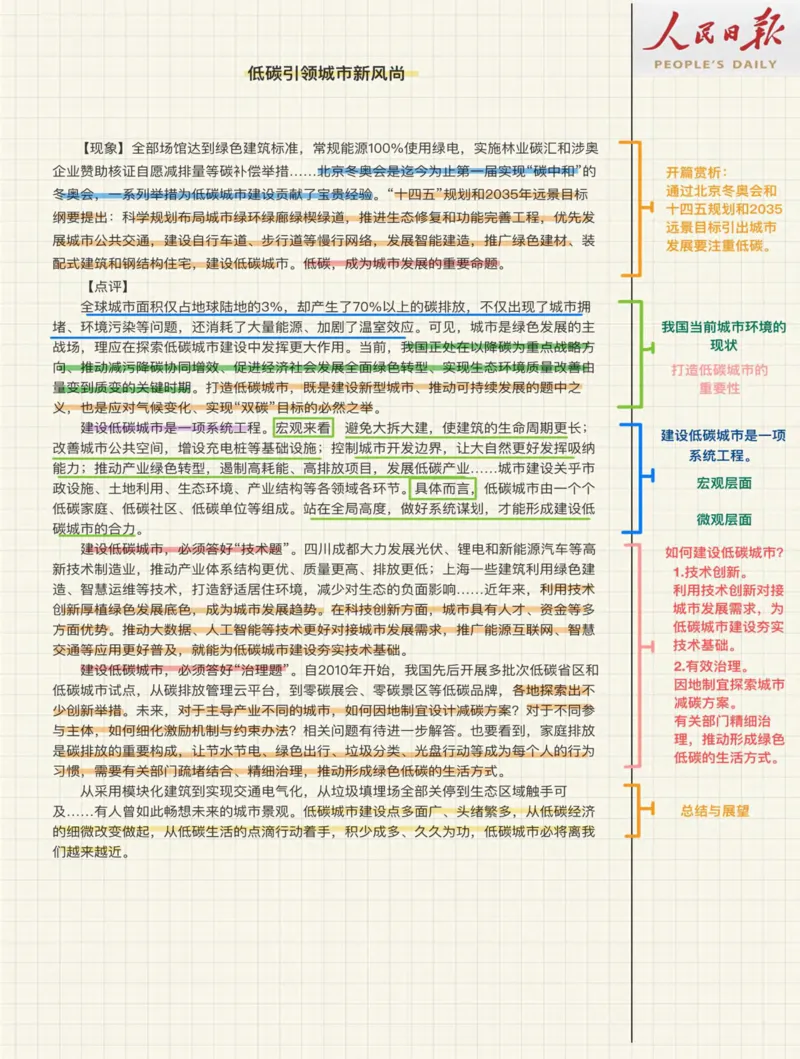 人民日报
PEOPLE'S DAILY
低碳引领城市新风尚
【现象】全部场馆达到绿色建筑标准，常规能源100%使用绿电，实施林业碳汇和涉奥
企业赞助核证自愿减排量等碳补偿举措……北京冬奥会是迄今为止第一届实现“碳中和”的
冬奥会，一系列举措为低碳城市建设贡献了宝贵经验。“十四五”规划和2035年远景目标
纲要提出：科学规划布局城市绿环绿廊绿楔绿道，推进生态修复和功能完善工程，优先发
展城市公共交通，建设自行车道、步行道等慢行网络，发展智能建造，推广绿色建材、装
配式建筑和钢结构住宅，建设低碳城市。低碳，成为城市发展的重要命题。
【点评】
全球城市面积仅占地球陆地的3%，却产生了70%以上的碳排放，不仅出现了城市拥
堵、环境污染等问题，还消耗了大量能源、加剧了温室效应。可见，城市是绿色发展的主
战场，理应在探索低碳城市建设中发挥更大作用。当前，我国正处在以降碳为重点战略方
向、推动减污降碳协同增效、促进经济社会发展全面绿色转型、实现生态环境质量改善由
量变到质变的关键时期。打造低碳城市，既是建设新型城市、推动可持续发展的题中之
义，也是应对气候变化、实现“双碳”目标的必然之举。
建设低碳城市是一项系统工程。宏观来看 避免大拆大建，使建筑的生命周期更长；
改善城市公共空间，增设充电桩等基础设施；控制城市开发边界，让大自然更好发挥吸纳
能力；推动产业绿色转型，遏制高耗能、高排放项目，发展低碳产业……城市建设关乎市
政设施、土地利用、生态环境、产业结构等各领域各环节。具体而言，低碳城市由一个个
低碳家庭、低碳社区、低碳单位等组成。站在全局高度，做好系统谋划，才能形成建设低
碳城市的合力。
建设低碳城市，必须答好“技术题”。四川成都大力发展光伏、锂电和新能源汽车等高
新技术制造业，推动产业体系结构更优、质量更高、排放更低；上海一些建筑利用绿色建
造、智慧运维等技术，打造舒适居住环境，减少对生态的负面影响……近年来，利用技术
创新厚植绿色发展底色，成为城市发展趋势。在科技创新方面，城市具有人才、资金等多
方面优势。推动大数据、人工智能等技术更好对接城市发展需求，推广能源互联网、智慧
交通等应用更好普及，就能为低碳城市建设夯实技术基础。
建设低碳城市，必须答好“治理题”。自2010年开始，我国先后开展多批次低碳省区和
低碳城市试点，从碳排放管理云平台，到零碳展会、零碳景区等低碳品牌，各地探索出不
少创新举措。未来，对于主导产业不同的城市，如何因地制宜设计减碳方案？对于不同参
与主体，如何细化激励机制与约束办法？相关问题有待进一步解答。也要看到，家庭排放
是碳排放的重要构成，让节水节电、绿色出行、垃圾分类、光盘行动等成为每个人的行为
习惯，需要有关部门疏堵结合、精细治理，推动形成绿色低碳的生活方式。
从采用模块化建筑到实现交通电气化，从垃圾填埋场全部关停到生态区域触手可
及……有人曾如此畅想未来的城市景观。低碳城市建设点多面广、头绪繁多，从低碳经济
的细微改变做起，从低碳生活的点滴行动着手，积少成多、久久为功，低碳城市必将离我
们越来越近。
开篇赏析：
通过北京冬奥会和
十四五规划和2035
远景目标引出城市
发展要注重低碳。
我国当前城市环境的
现状
打造低碳城市的
重要性
建设低碳城市是一项
系统工程。
宏观层面
微观层面
如何建设低碳城市?
1.技术创新。
利用技术创新对接
城市发展需求，为
低碳城市建设夯实
技术基础。
2.有效治理。
因地制宜探索城市
减碳方案。
有关部门精细治
理，推动形成绿色
低碳的生活方式。
总结与展望